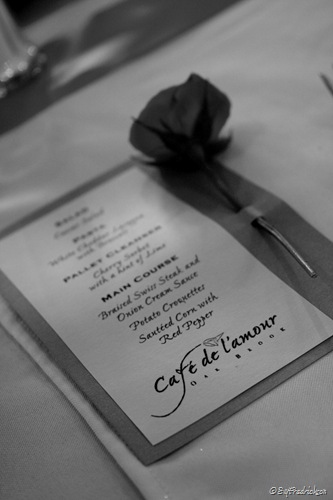 SALAD
Caesar Salad
PASTA
White Cheddar Lasagna
with Broccoli
PALLET CLEANSER
Cherry Sorbet
with a hint of Lime
MAIN COURSE
Braised Swiss Steak and
Onion Cream Sauce
Potato Croquettes
Sautted Corn with
Red Pepper
Café de l'amour
OAK BROOK